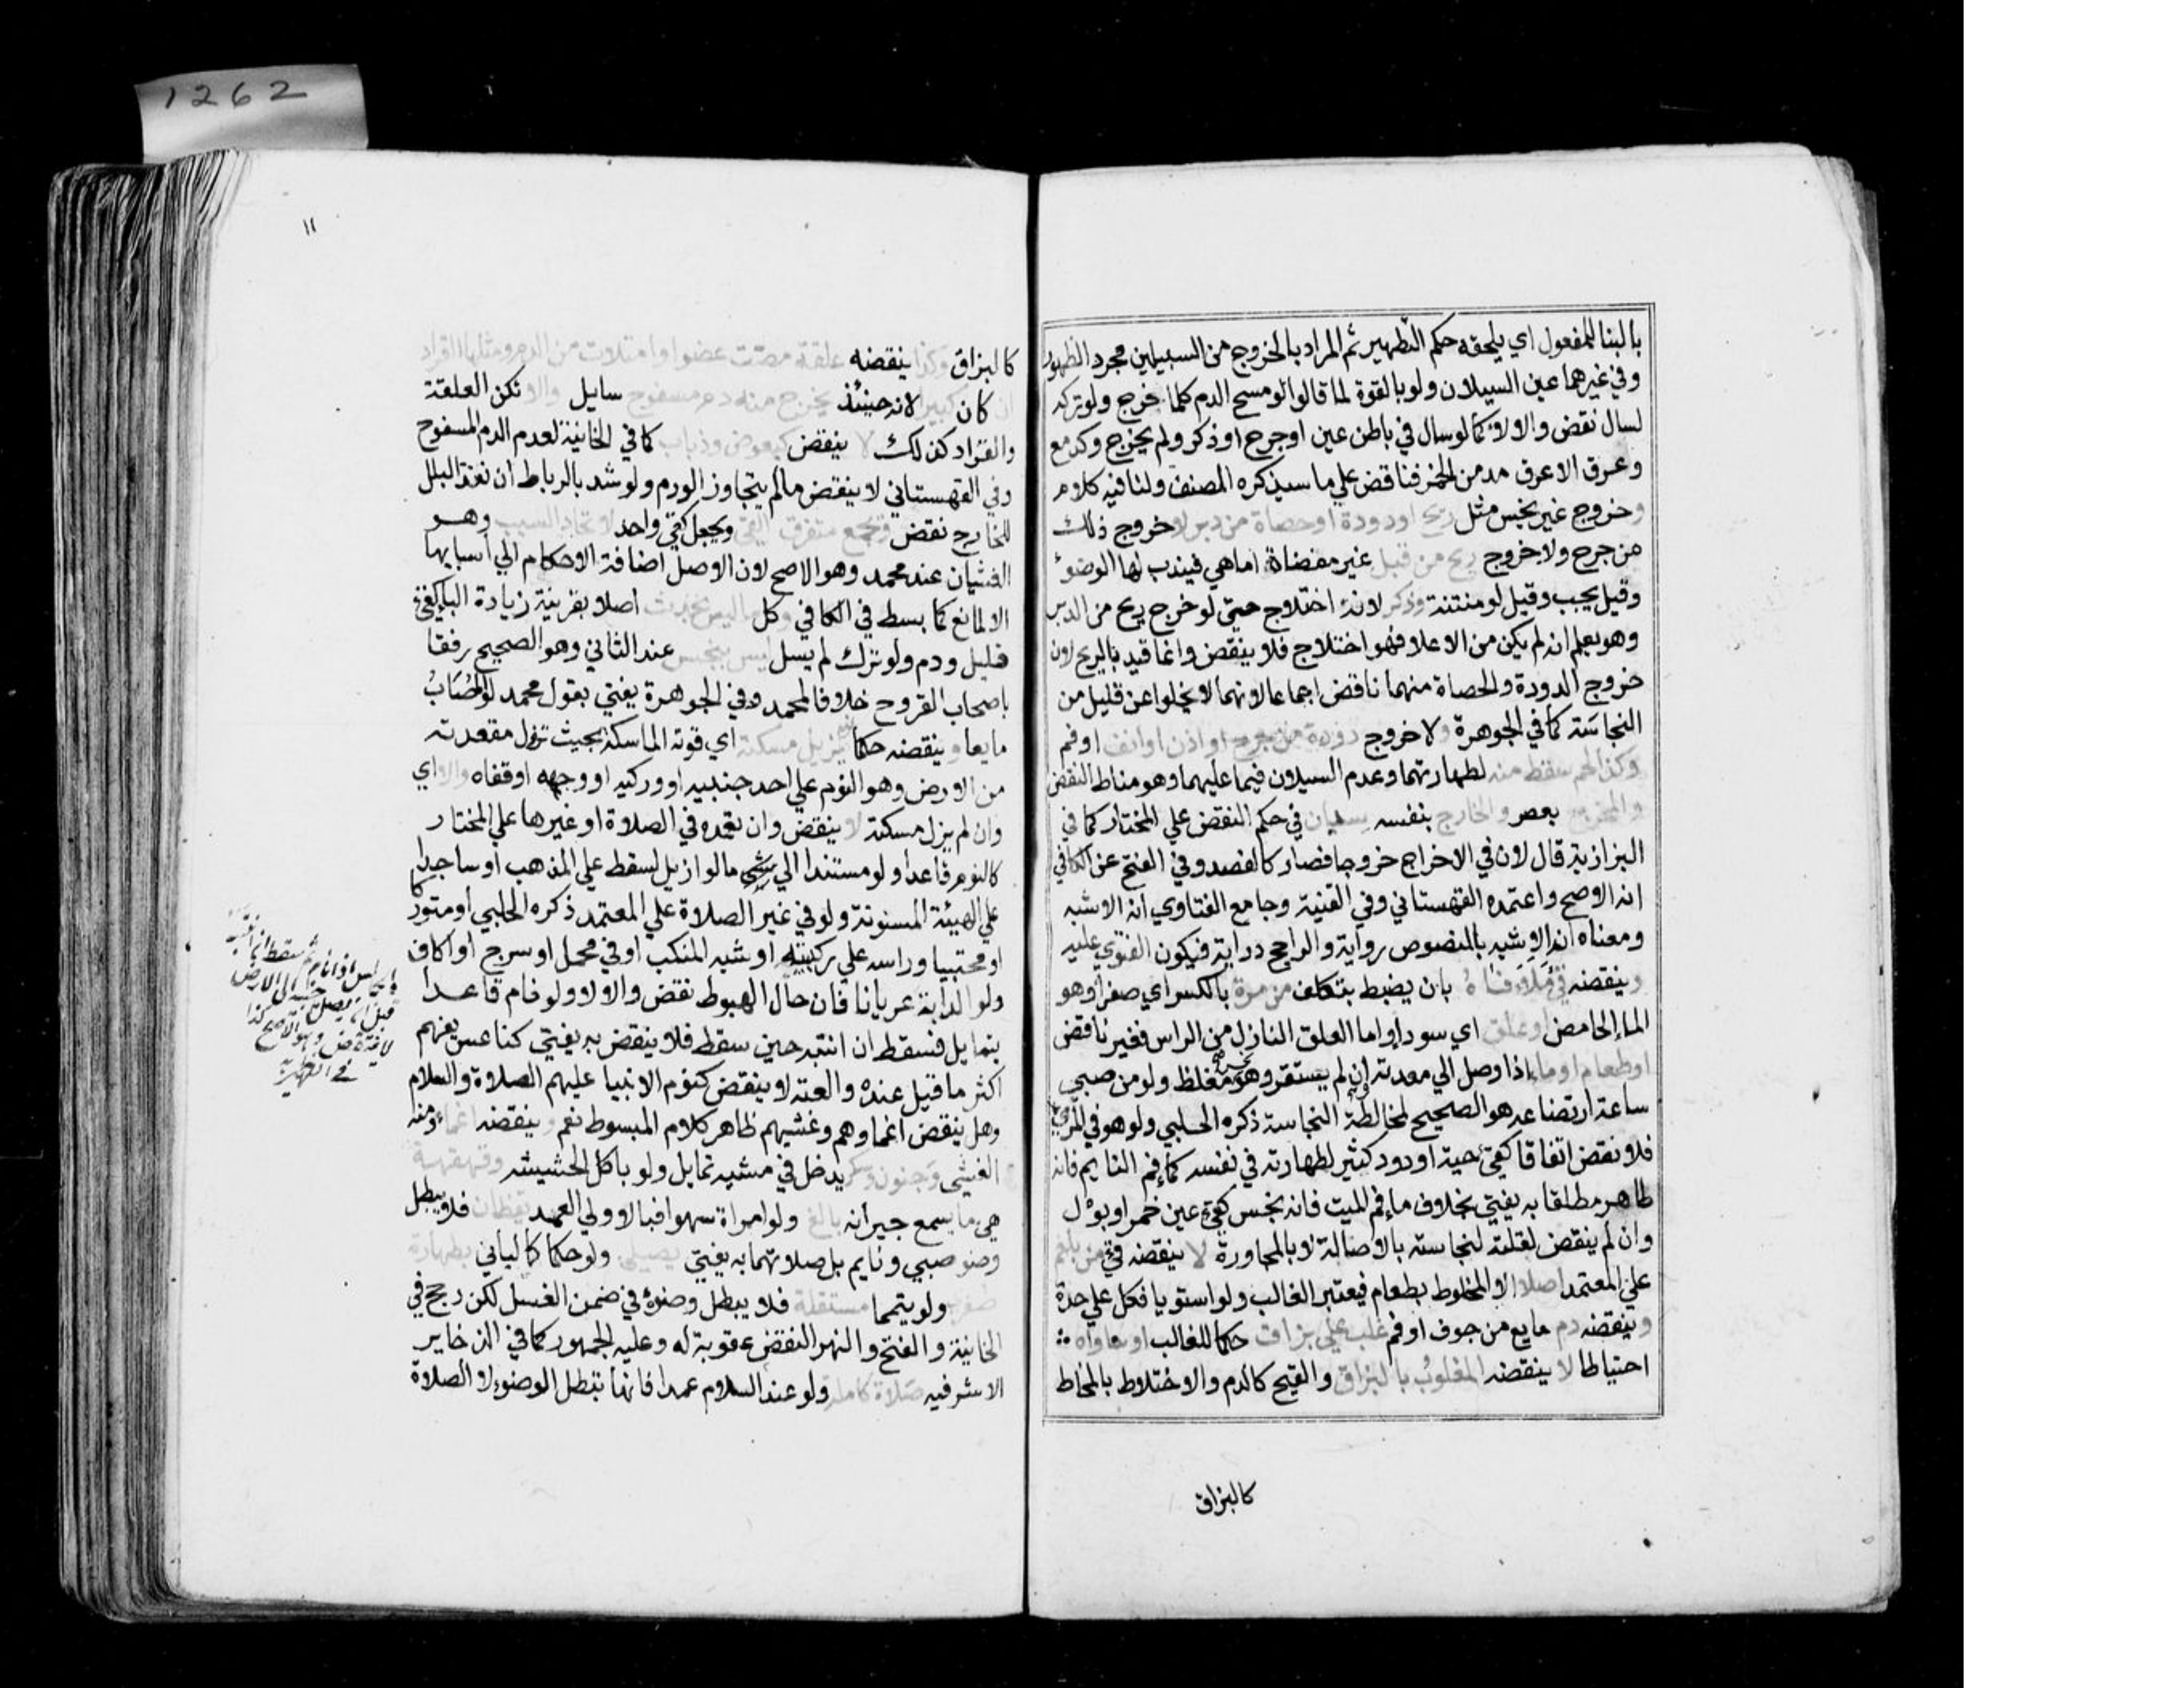 1262
بالبنا للمفعول اي يلحقه حكم التطهير ثم المراد بالخروج من السبيلين مجرد الظهور
وفي غيرهما عين السيلان ولو بالقوة لما قالوا لو مسح الدم كلما خرج ولو تركه
لسال نقض والا لا كما لو سال في باطن عين او جرح او ذكر ولم يخرج وكدمع
وعرق الا عرق مدمن الخمر فناقض علي ما سيذكره المصنف ولنا فيه كلام
وخروج غير نجس مثل ريح او دودة او حصاة من دبر لا خروج ذلك
من جرح ولا خروج ريح من قبل غير مفضاة اما هي فيندب لها الوضوء
وقيل يجب وقيل لو منتنة وذكر لانه اختلاج حتي لو خرج ريح من الدبر
وهو يعلم انه لم يكن من الاعلا فهو اختلاج فلا ينقض وانما قيد بالريح لان
خروج الدودة والحصاة منهما ناقض اجماعا لانهما لا يخلوا عن قليل من
النجاسة كما في الجوهرة ولا خروج دودة من جرح او اذن او انف او فم
وكذا لحم سقط منه لطهارتهما وعدم السيلان فيما عليهما وهو مناط النقض
والمخرج بعصر والخارج بنفسه سيان في حكم النقض علي المختار كما في
البزازية قال لان في الاخراج خروجا فصار كالفصد وفي الفتح عن الكافي
انه الاصح واعتمده القهستاني وفي القنية وجامع الفتاوي انه الاشبه
ومعناه انه الاشبه بالمنصوص رواية والراجح دراية فيكون الفتوي عليه
وينقضه قيء ملأ فاه بان يضبط بتكلف من مرة بالكسر اي صفرا وهو
الماء الحامض او علق اي سودا واما العلق النازل من الراس فغير ناقض
او طعام او ماء اذا وصل الي معدته وان لم يستقر وهو نجس مغلظ ولو من صبي
ساعة ارتضاعه هو الصحيح لمخالطة النجاسة ذكره الحلبي ولو هو في المري
فلا نقض اتفاقا كقيء حية او دود كثير لطهارته في نفسه كماء فم النايم فانه
طاهر مطلقا به يفتي بخلاف ماء فم الميت فانه نجس كقيء عين خمر او بول
وان لم ينقض لقلته لنجاسته بالاصالة لا بالمجاورة لا ينقضه قيء من بلغم
علي المعتمد اصلا الا المخلوط بطعام فيعتبر الغالب ولو استويا فكل علي حدة
وينقضه دم مايع من جوف او فم غلب علي بزاق حكما للغالب او ساواه
احتياطا لا ينقضه المغلوب بالبزاق والقيح كالدم والاختلاط بالمخاط
كالبزاق
١١
كالبزاق وكذا ينقضه علقة مصت عضوا وامتلات من الدم ومثلها القراد
ان كان كبيرا لانه حينئذ يخرج منه دم مسفوح سايل والا تكن العلقة
والقراد كذلك لا ينقض كبعوض وذباب كما في الخانية لعدم الدم المسفوح
وفي القهستاني لا ينقض مالم يتجاوز الورم ولو شد بالرباط ان نفذ البلل
للخارج نقض ويجمع متفرق القيء ويجعل كقيء واحد لاتحاد السبب وهو
الغثيان عند محمد وهو الاصح لان الاصل اضافة الاحكام الي اسبابها
الا لمانع كما بسط في الكافي وكل ما ليس بحدث اصلا بقرينة زيادة الباء كقيء
قليل ودم ولو ترك لم يسل ليس بنجس عند الثاني وهو الصحيح رفقا
باصحاب القروح خلافا لمحمد وفي الجوهرة يفتي بقول محمد لو المصاب
مايعا وينقضه حكما نوم يزيل مسكته اي قوته الماسكة بحيث تزول مقعدته
من الارض وهو النوم علي احد جنبيه او وركيه او وجهه او قفاه والا اي
وان لم يزل مسكته لا ينقض وان تعمده في الصلاة او غيرها علي المختار
كالنوم قاعدا ولو مستندا الي شيء مالو ازيل لسقط علي المذهب او ساجدا
علي الهيئة المسنونة ولو في غير الصلاة علي المعتمد ذكره الحلبي او متوركا
او محتبيا وراسه علي ركبتيه او شبه المنكب او في محمل او سرج او اكاف
ولو الدابة عريانا فان حال الهبوط نقض والا لا ولو نام قاعدا
يتمايل فسقط ان انتبه حين سقط فلا ينقض به يفتي كناعس يفهم
اكثر ما قيل عنده والعته لا ينقض كنوم الانبيا عليهم الصلاة والسلام
وهل ينقض اغماوهم وغشيهم ظاهر كلام المبسوط نعم وينقضه اغماء ومنه
الغشي وجنون وسكر يدخل في مشيه تمايل ولو باكل الحشيشه وقهقهة
هي ما يسمع جيرانه بالغ ولو امراة سهوا فبالاولي العمد يقظان فلا يبطل
وضو صبي ونايم بل صلاتهما به يفتي يصلي ولو حكما كالباني بطهارة
صغري ولو يتمما مستقلة فلا يبطل وضوء في ضمن الغسل لكن رجح في
الخانية والفتح والنهر النقض عقوبة له وعليه الجمهور كما في الذخاير
الاشرفيه صلاة كاملة ولو عند السلام عمدا فانها تبطل الوضوء لا الصلاة